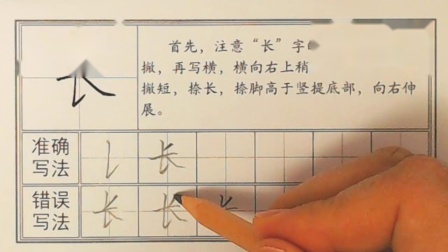 首先，注意“长”字
撇，再写横，横向右上稍
撇短，捺长，捺脚高于竖提底部，向右伸
展。
长
准确
写法
长
错误
写法
长 长 长